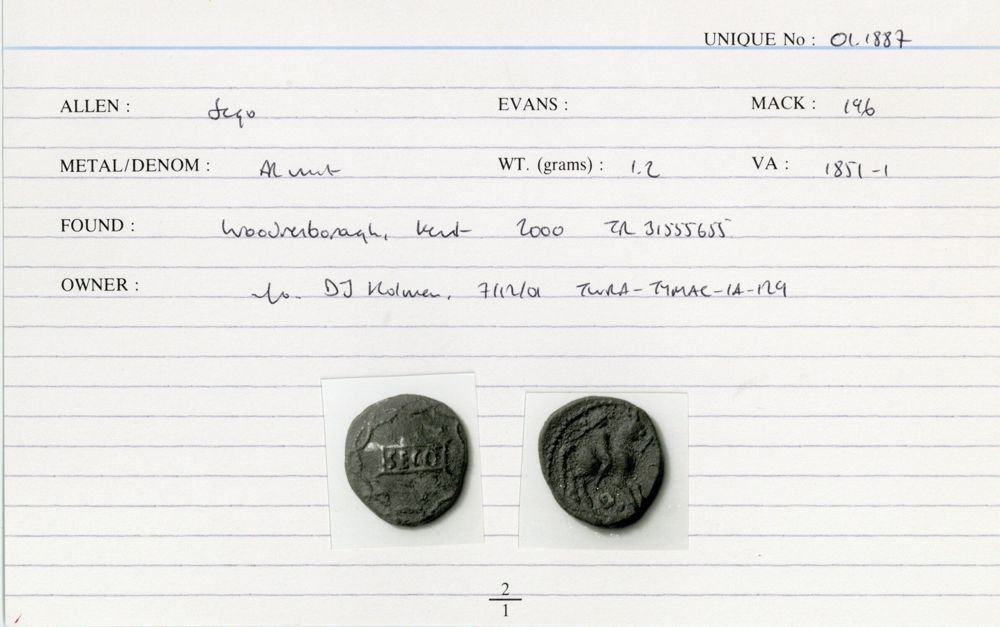 UNIQUE No : 01.1887
ALLEN : Sego EVANS : MACK : 196
METAL/DENOM : AR unit WT. (grams) : 1.2 VA : 1851-1
FOUND : Woodnesborough, Kent 2000 TR 31555655
OWNER : DJ Holman, 7/12/01 TWRA-TYMAC-IA-129
SEGO
2
1